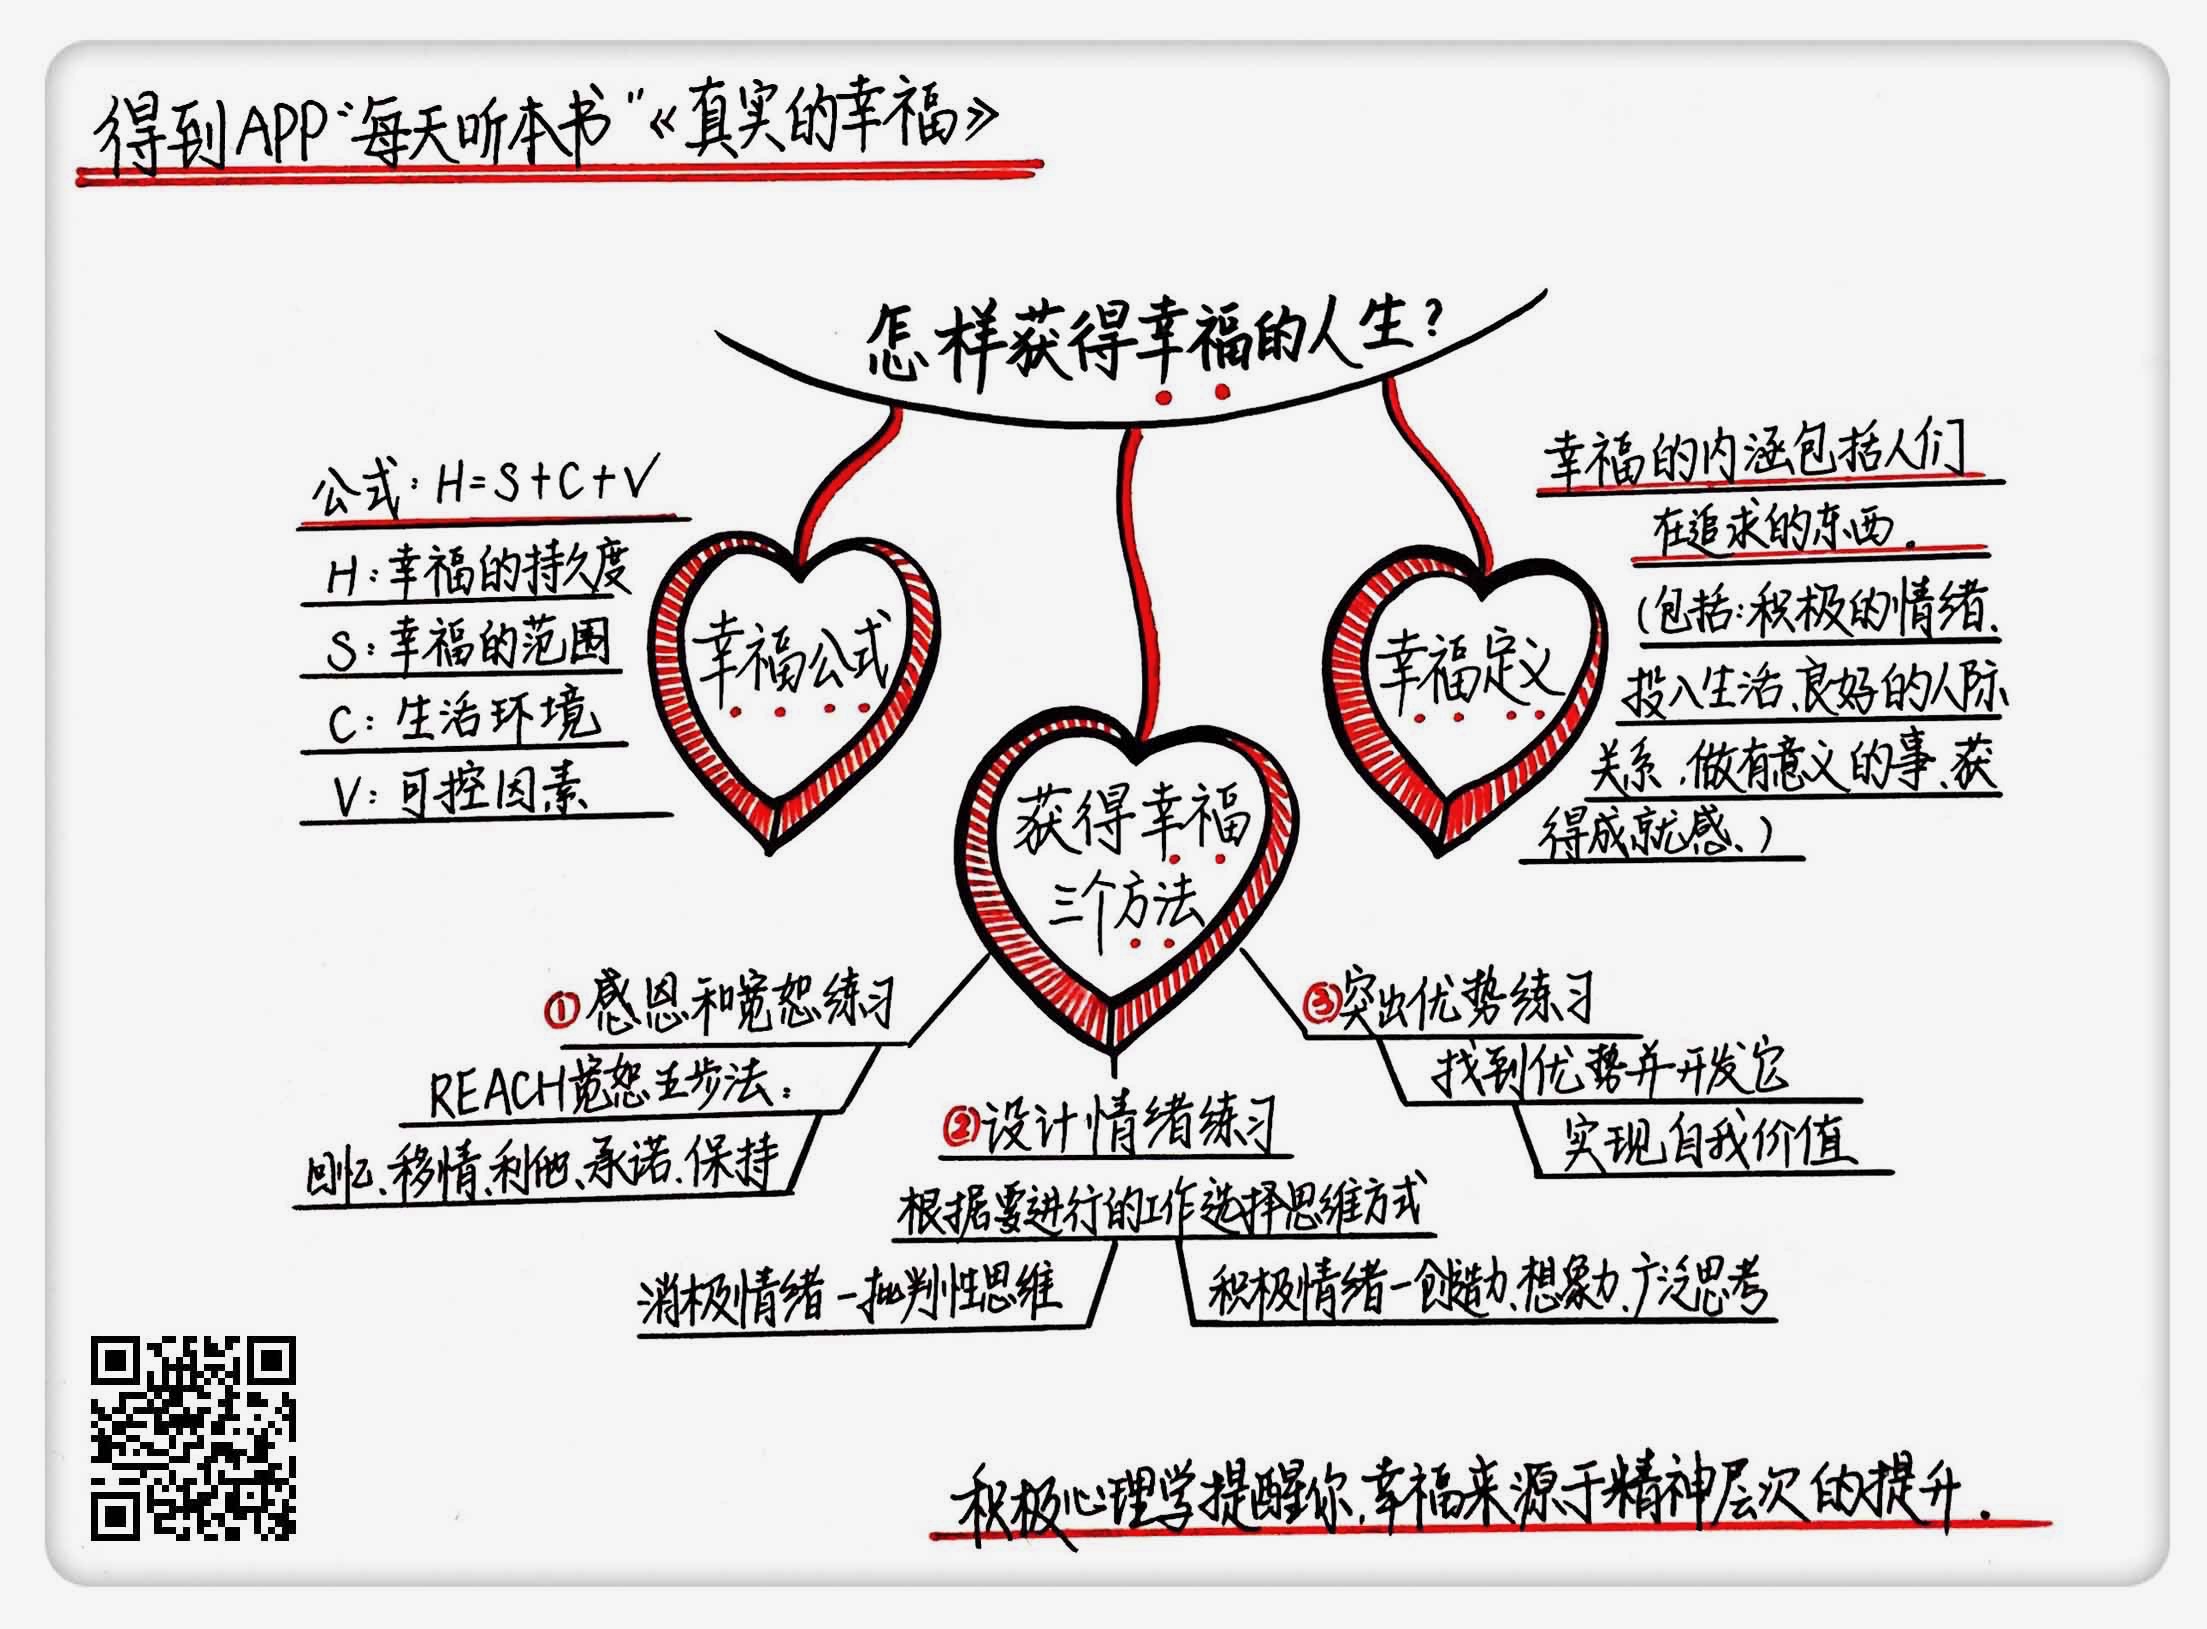 得到APP“每天听本书”《真实的幸福》
怎样获得幸福的人生?
公式: H=S+C+V
H: 幸福的持久度
S: 幸福的范围
C: 生活环境
V: 可控因素
幸福公式
获得幸福
三个方法
幸福定义
幸福的内涵包括人们
在追求的东西.
(包括:积极的情绪、
投入生活、良好的人际
关系、做有意义的事、获
得成就感、)
①感恩和宽恕练习
REACH宽恕五步法:
回忆、移情、利他、承诺、保持
②设计情绪练习
根据要进行的工作选择思维方式
消极情绪-批判性思维
积极情绪-创造力、想象力、广泛思考
③突出优势练习
找到优势并开发它
实现自我价值
积极心理学提醒你,幸福来源于精神层次的提升.